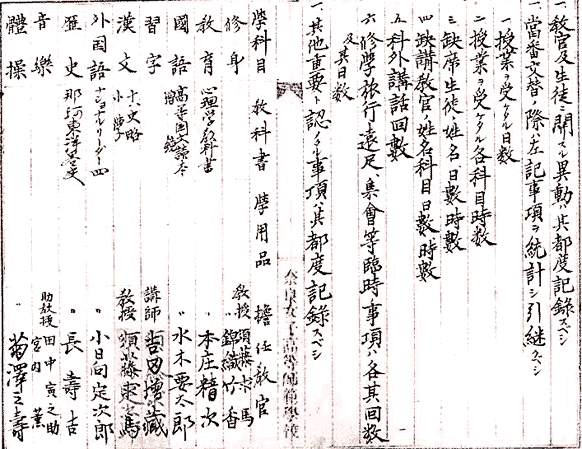 一、教官及生徒ニ関スル異動ハ其都度記録スベシ
一、當番交替ノ際ハ左ノ記事項ヲ統計シ引継クベシ
一 授業ヲ受ケタル日数
二 授業ヲ受ケタル各科目時数
三 缺席生徒ノ姓名日數時數
四 缺講教官ノ姓名科目日數時數
五 科外講話回數
六 修學旅行、遠足、集會等臨時ノ事項ハ各其回数
及其日数
一、其他重要ト認ムル事項ハ其都度記錄スベシ
奈良女子高等師範學校
學科目 教科書 學用品 擔任教官
修身 教授
〃 錦織竹香
教育 心理学教科書 〃 本庄精次
國語 〃 水木要太郎
習字 講師
漢文 十八史略 教授 須藤求馬
外国語 〃 小日向定次郎
歴史 那珂東洋 〃 長壽吉
音樂 助教授 田中寅之助
宮内
體操 〃 菊澤